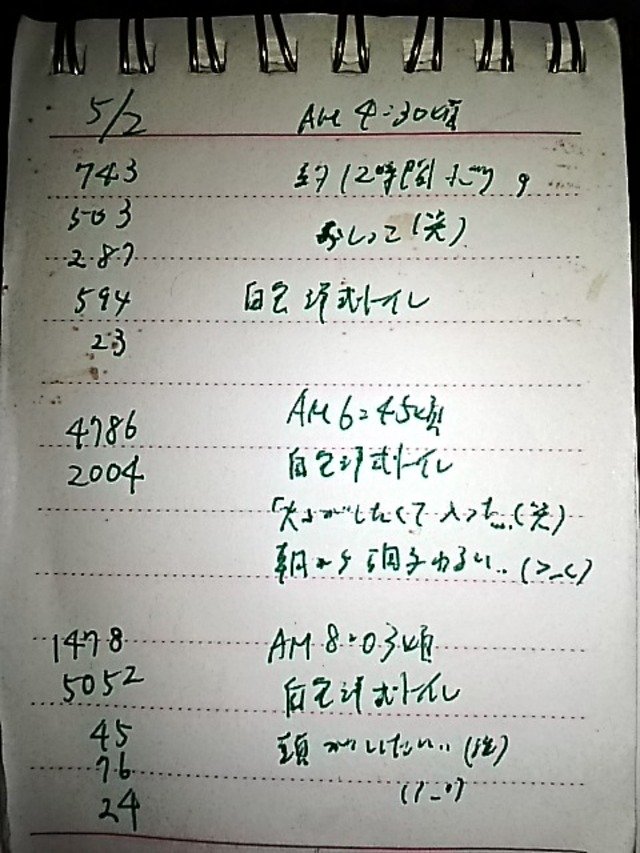 5/2 AM 4:30頃
743 約12時間ぶり。
503 おしっこ(笑)
287
594 自宅洋式トイレ
23
AM 6:45頃
4786 自宅洋式トイレ
2004
がしたくて入った...(笑)
朝から調子わるい..(>_<)
1478 AM 8:03頃
5052 自宅洋式トイレ
45 頭がいたい..
76
24